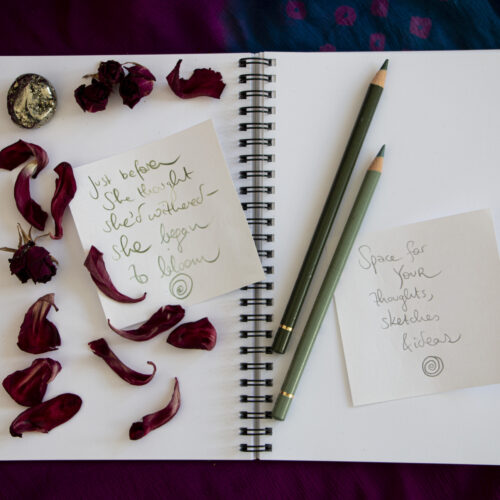 Just before
She thought
she'd withered –
she began
to bloom
Space for
YOUR
thoughts,
sketches
& ideas